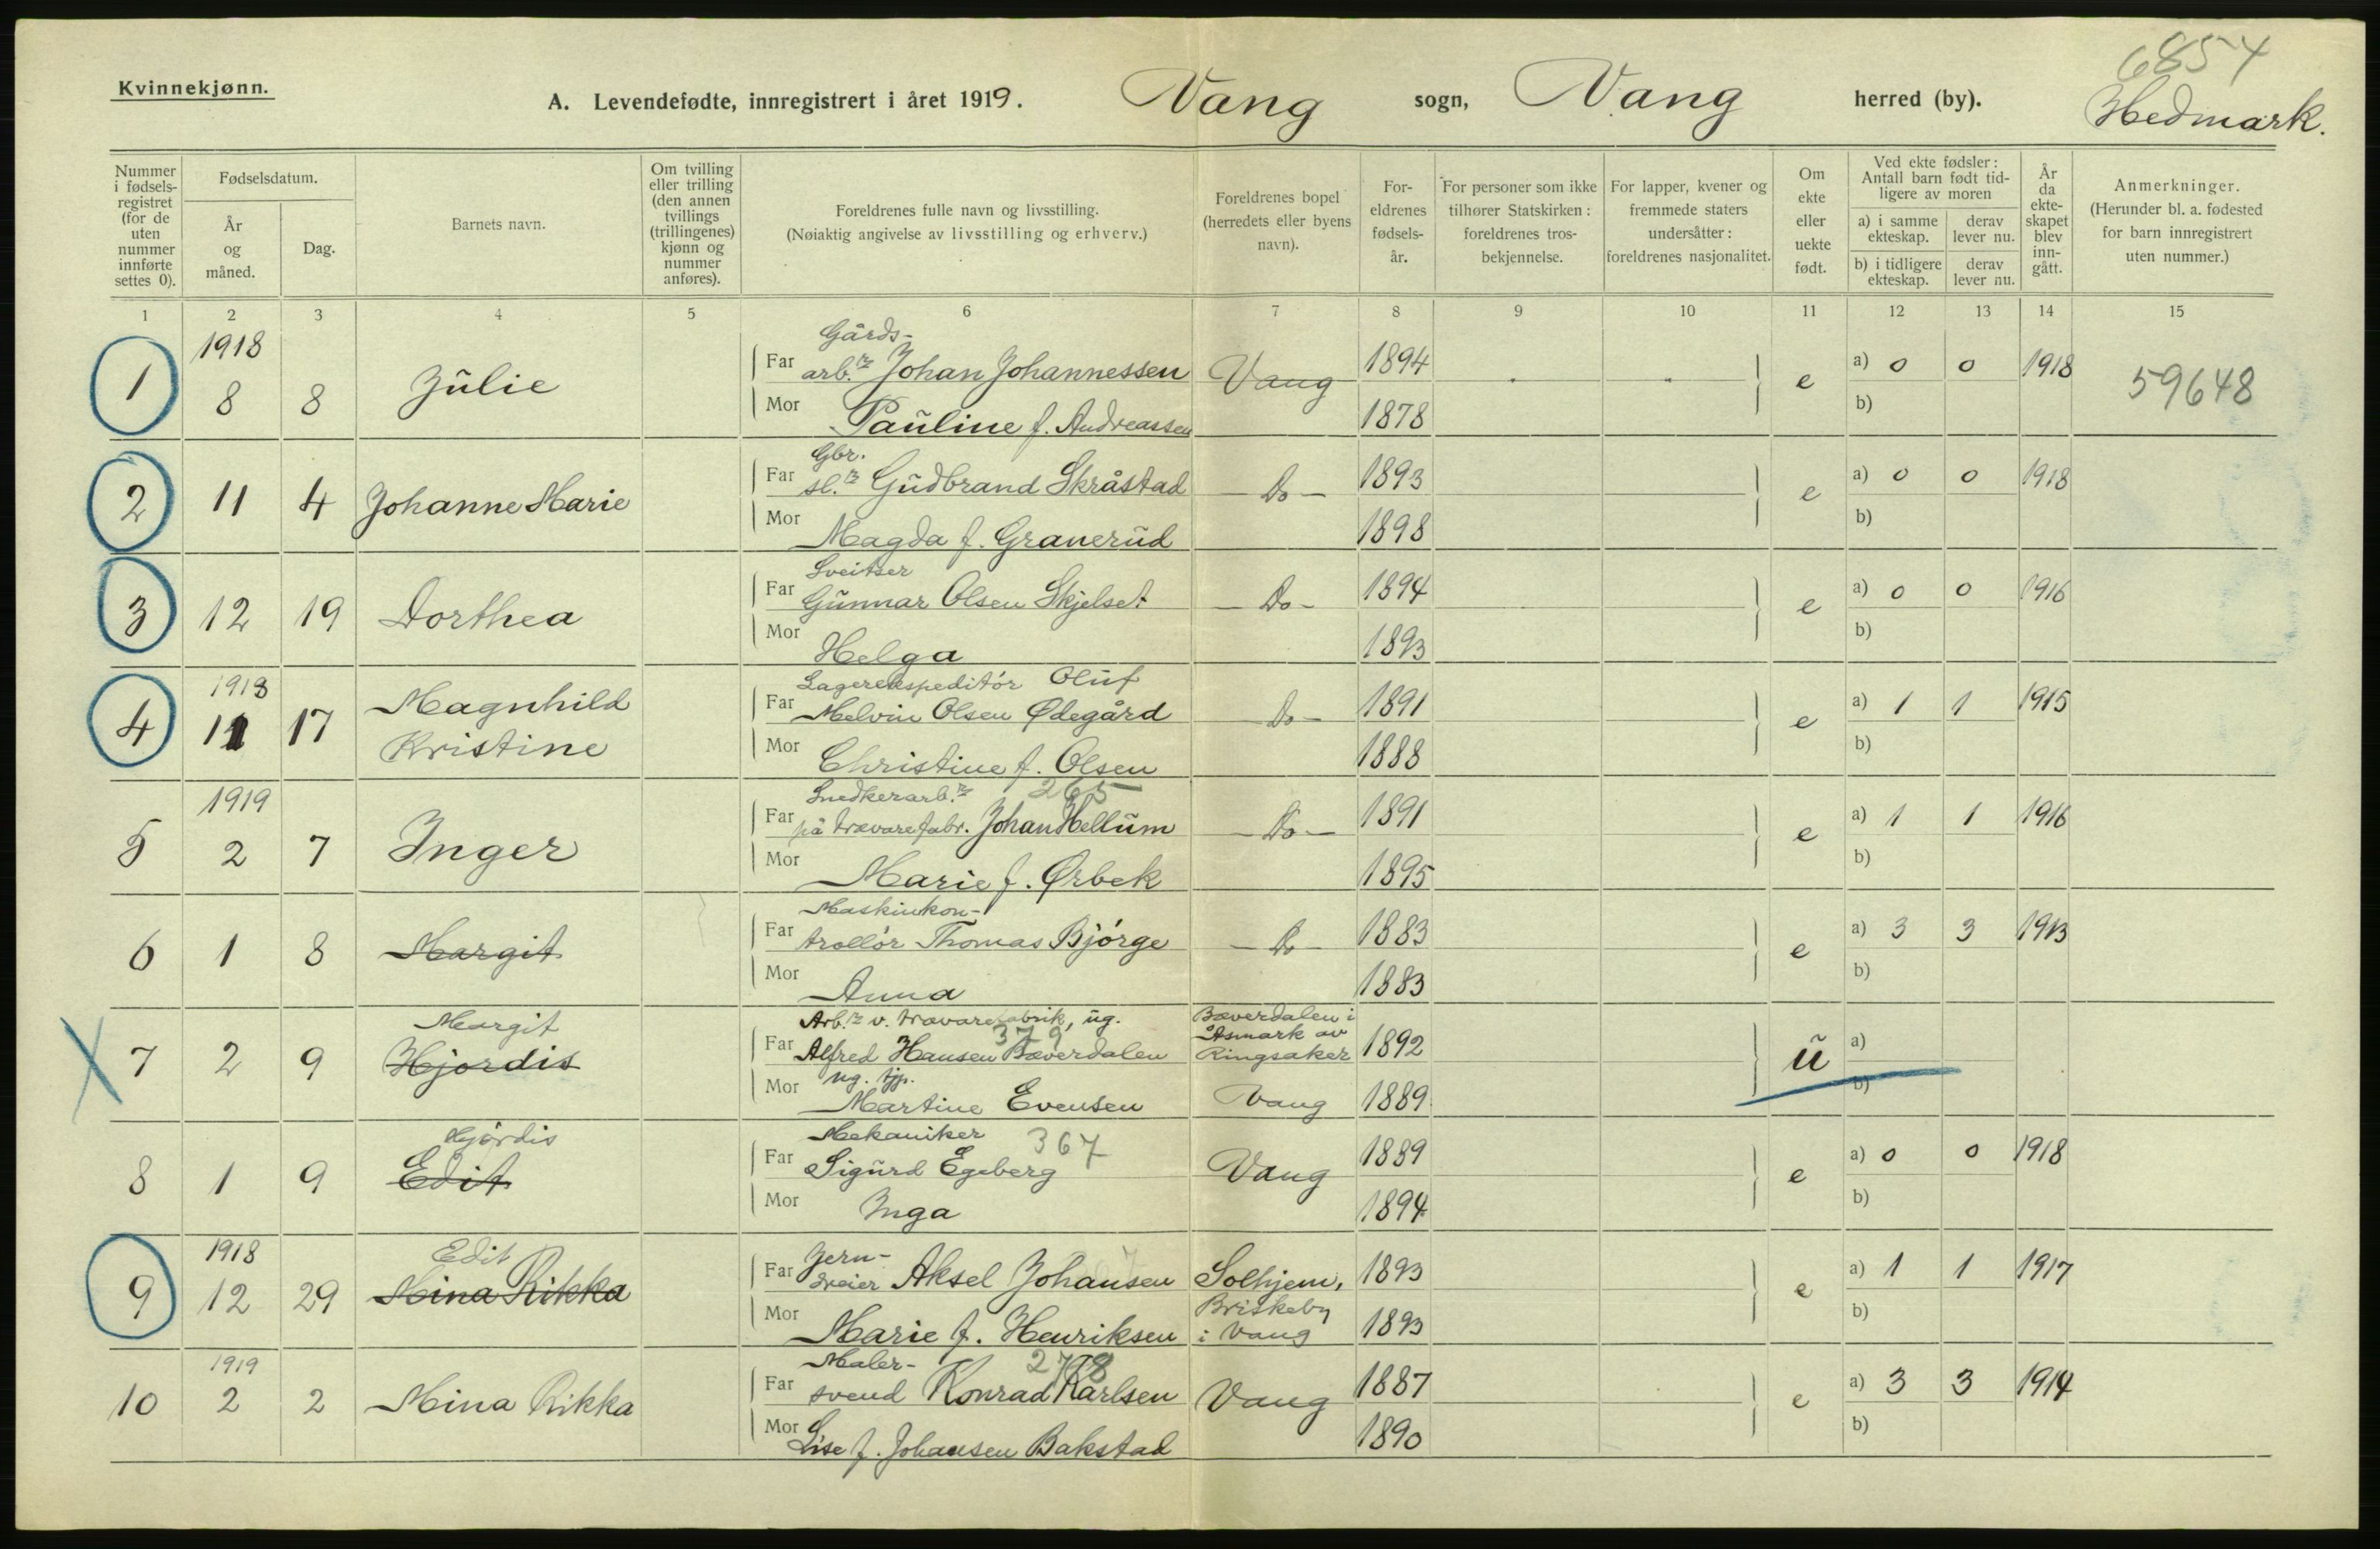 6854
Kvinnekjønn.
A. Levendefødte, innregistrert i året 1919. Vang sogn, Vang herred (by). Hedmark.
Nummer i fødselsregistret (for de uten nummer innførte settes 0).
Fødselsdatum.
År og måned.
Dag.
Barnets navn.
Om tvilling eller trilling (den annen tvillings (trillingenes) kjønn og nummer anføres).
Foreldrenes fulle navn og livsstilling.
(Nøiaktig angivelse av livsstilling og erhverv.)
Foreldrenes bopel (herredets eller byens navn).
Foreldrenes fødselsår.
For personer som ikke tilhører Statskirken: foreldrenes trosbekjennelse.
For lapper, kvener og fremmede staters undersåtter: foreldrenes nasjonalitet.
Om ekte eller uekte født.
Ved ekte fødsler: Antall barn født tidligere av moren
a) i samme ekteskap. derav lever nu.
b) i tidligere ekteskap. derav lever nu.
År da ekteskapet blev inngått.
Anmerkninger.
(Herunder bl. a. fødested for barn innregistrert uten nummer.)
1 2 3 4 5 6 7 8 9 10 11 12 13 14 15
1918 Gårds-
1 8 8 Julie Far arb.r Johan Johannessen Vang 1894 e a) 0 0 1918 59648
Mor Pauline f. Andreassen 1878 b)
Gbr.
2 11 4 Johanne Marie Far sl.r Gudbrand Skråstad - Do - 1893 e a) 0 0 1918
Mor Magda f. Granerud 1898 b)
Sveitser
3 12 19 Dorthea Far Gunnar Olsen Skjelset - Do - 1894 e a) 0 0 1916
Mor Helga 1893 b)
1918 Lagerekspeditör Oluf
4 11 17 Magnhild Kristine Far Melvin Olsen Ødegård - Do - 1891 e a) 1 1 1915
Mor Christine f. Olsen 1888 b)
1919 Snedkerarb.r 265
5 2 7 Inger Far på trævarefabr. Johan Hellum - Do - 1891 e a) 1 1 1916
Mor Marie f. Ørbek 1895 b)
Maskinkon-
6 1 8 Margit Far trollör Thomas Bjørge - Do - 1883 e a) 3 3 1913
Mor Anna 1883 b)
Margit Arb.r v. trævarefabrik, ug. 379 Bæverdalen i Åsmark av Ringsaker
7 2 9 Hjordis Far Alfred Hansen Bæverdalen 1892 u a)
ug. tjp.
Mor Martine Evensen Vang 1889 b)
Hjørdis Mekaniker 367
8 1 9 Edit Far Sigurd Egeberg Vang 1889 e a) 0 0 1918
Mor Inga 1894 b)
1918 Edit Jern-
9 12 29 Mina Rikka Far dreier Aksel Johansen Solhjem, Briskeby i Vang 1893 e a) 1 1 1917
Mor Marie f. Henriksen 1893 b)
1919 Maler-
10 2 2 Mina Rikka Far svend Konrad Karlsen Vang 1887 e a) 3 3 1914
Mor Lise f. Johansen Bakstad 1890 b)